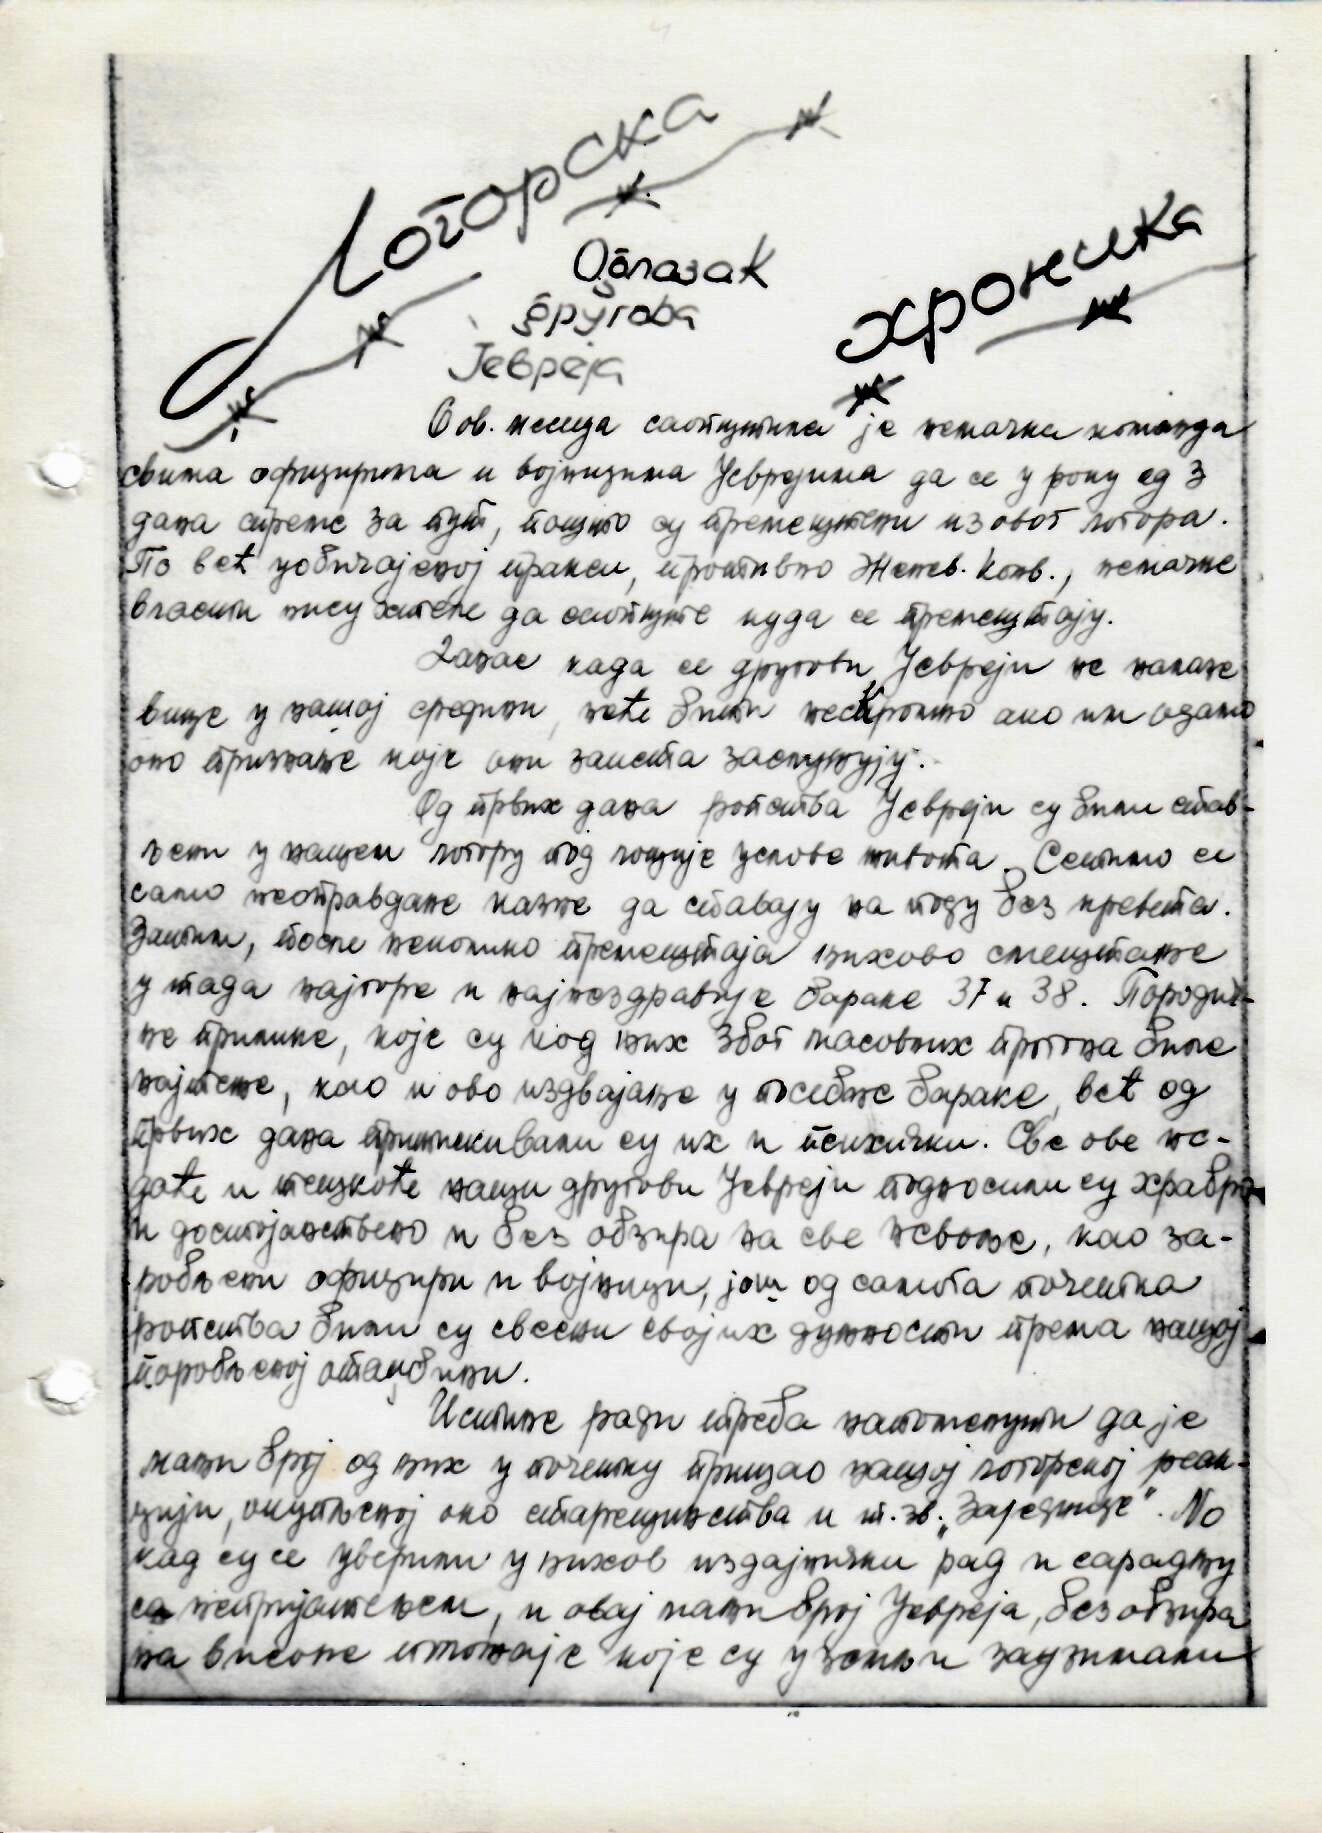 Логорска
хроника
Одлазак
другова
Јевреја
6 ов. месеца саопштила је немачка команда
свима официрима и војницима Јеврејима да се у року од 3
дана спреме за пут, пошто су премештени из овог логора.
По већ уобичајеној пракси, противно Женев. Конв., немачке
власти нису хтеле да саопште куда се премештају.
Данас када се другови Јевреји не налазе
више у нашој средини, неће бити нескромно ако им одамо
оно признање које они заиста заслужују.
Од првих дана ропства Јевреји су били став-
љени у нашем логору под лошије услове живота. Сетимо се
само неоправдане казне да спавају на поду без кревета.
Затим, после неколико премештаја њихово смештање
у тада најгоре и најнездравије бараке 37 и 38. Породич-
не прилике, које су код њих због масовних прогона биле
најтеже, као и ово издвајање у посебне бараке, већ од
првих дана притискивали су их и психички. Све ове не-
даће и тешкоће наши другови Јевреји подносили су храбро
и достојанствено и без обзира на све невоље, као за-
робљени официри и војници, још од самога почетка
ропства били су свесни својих дужности према нашој
поробљеној отаџбини.
Истине ради треба напоменути да је
мали број од њих у почетку пришао нашој логорској реак-
цији, окупљеној око старешинства и т. зв. „Заједнице“. No
кад су се уверили у њихов издајнички рад и сарадњу
са непријатељем, и овај мали број Јевреја, без обзира
на високе положаје које су у земљи заузимали